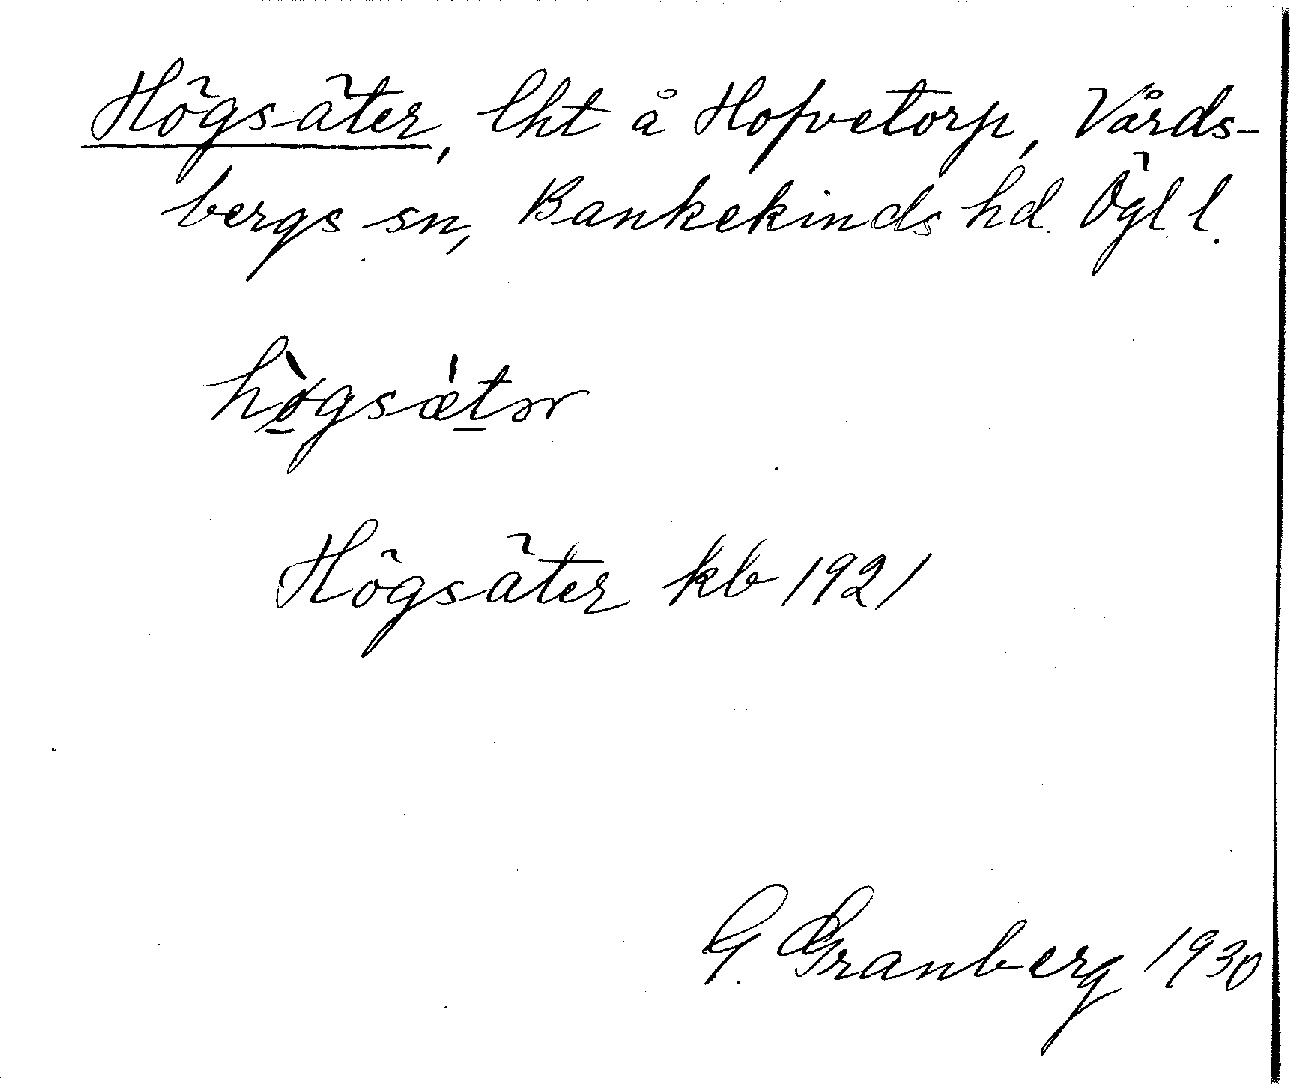 Högsäter, lht å Hofvetorp, Vårds-
bergs sn, Bankekinds hd. Ögl l.
hø̀gsæ̀tər
Högsäter kb 1921
G. Granberg 1930